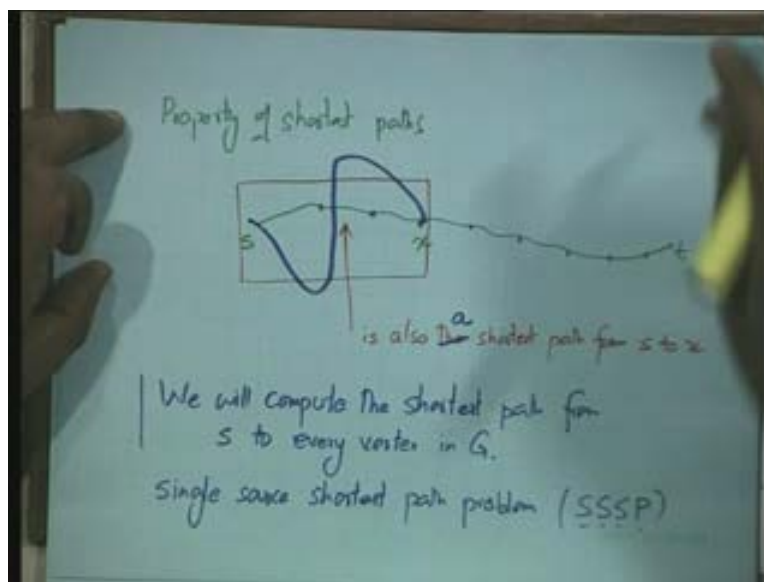 Property of shortest paths
s x t
is also a shortest path from s to x
We will compute the shortest path from
s to every vertex in G.
Single source shortest path problem (SSSP)